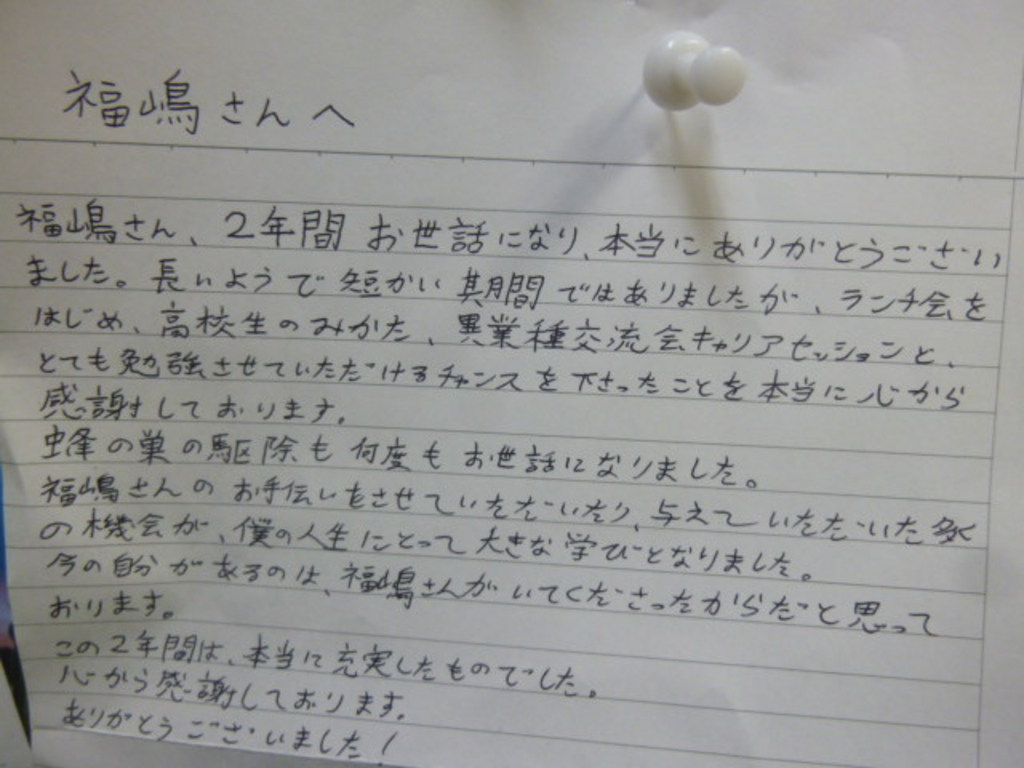 福嶋さんへ
福嶋さん、2年間お世話になり、本当にありがとうござい
ました。長いようで短かい期間ではありましたが、ランチ会を
はじめ、高校生のみかた、異業種交流会キャリアセッションと、
とても勉強させていただけるチャンスを下さったことを本当に心から
感謝しております。
蜂の巣の駆除も何度もお世話になりました。
福嶋さんのお手伝いをさせていただいたり、与えていただいた多く
の機会が、僕の人生にとって大きな学びとなりました。
今の自分があるのは、福嶋さんがいてくださったからだと思って
おります。
この2年間は、本当に充実したものでした。
心から感謝しております。
ありがとうございました!